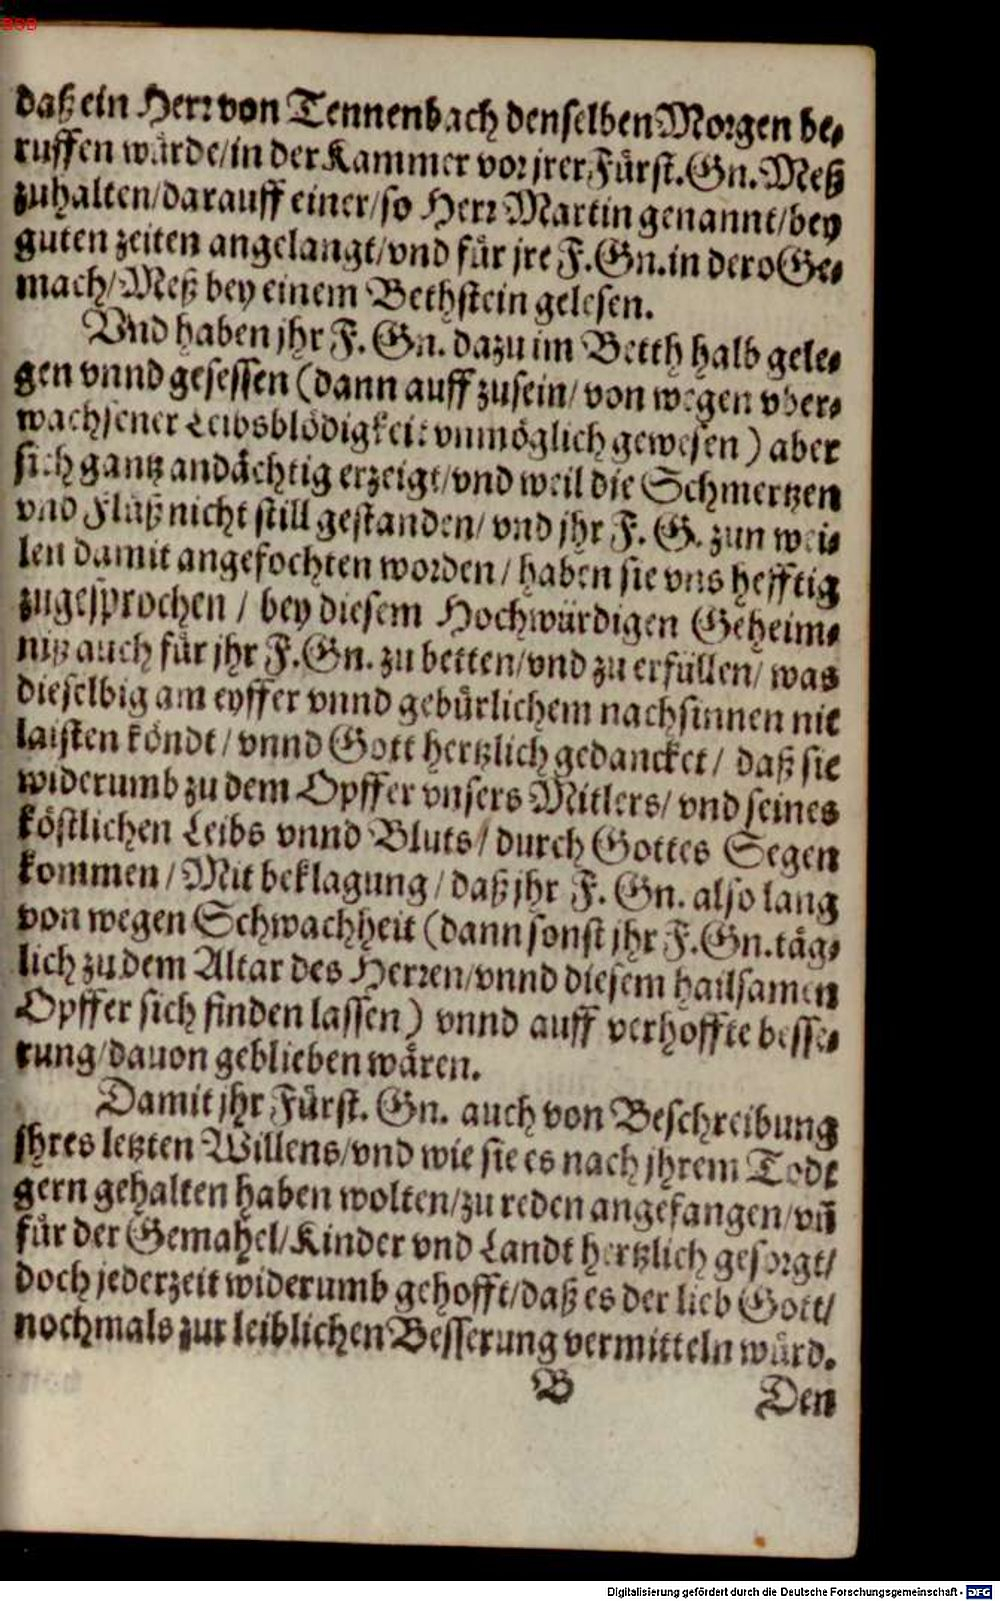 daß ein Herr von Tennenbach denselben Morgen be-
ruffen wůrde/in der Kammer vor jrer Fürst. Gn. Meß
zuhalten/darauff einer/so Herr Martin genannt/bey
guten zeiten angelangt/vnd für jre F. Gn. in dero Ge-
mach/Meß bey einem Bethstein gelesen.
Vnd haben jhr F. Gn. dazu im Betth halb gele-
gen vnnd gesessen (dann auff zusein/ von wegen vber-
wachsener Leibsblödigkeit vnmöglich gewesen) aber
sich gantz andächtig erzeigt/vnd weil die Schmertzen
vnd Flüß nicht still gestanden/ vnd jhr F. G. zun wei-
len damit angefochten worden/ haben sie vns hefftig
zugesprochen / bey diesem Hochwürdigen Geheim-
niß auch für jhr F. Gn. zu betten/vnd zu erfüllen/ was
dieselbig am eyffer vnnd gebürlichem nachsinnen nit
laisten köndt/ vnnd Gott hertzlich gedancket/ daß sie
widerumb zu dem Opffer vnsers Mitlers/ vnd seines
köstlichen Leibs vnnd Bluts/ durch Gottes Segen
kommen/ Mit beklagung/ daß jhr F. Gn. also lang
von wegen Schwachheit (dann sonst jhr F. Gn. täg-
lich zu dem Altar des Herren/vnnd diesem hailsamen
Opffer sich finden lassen) vnnd auff verhoffte besse-
rung/dauon geblieben wären.
Damit jhr Fürst. Gn. auch von Beschreibung
jhres letzten Willens/vnd wie sie es nach jhrem Todt
gern gehalten haben wolten/zu reden angefangen/vñ
für der Gemahel/Kinder vnd Landt hertzlich gesorgt/
doch jederzeit widerumb gehofft/daß es der lieb Gott/
nochmals zur leiblichen Besserung vermitteln würd.
B Den
Digitalisierung gefördert durch die Deutsche Forschungsgemeinschaft - DFG